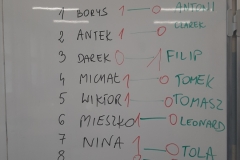 1 BORYS 1 - 0 ANTONI
2 ANTEK 1 - 0 CZAREK
3 DAREK 0 - 1 FILIP
4 MICHAŁ 1 - 0 TOMEK
5 WIKTOR 1 - 0 TOMASZ
6 MIESZKO 1 - 0 LEONARD
7 NINA 1 - 0 TOLA
8